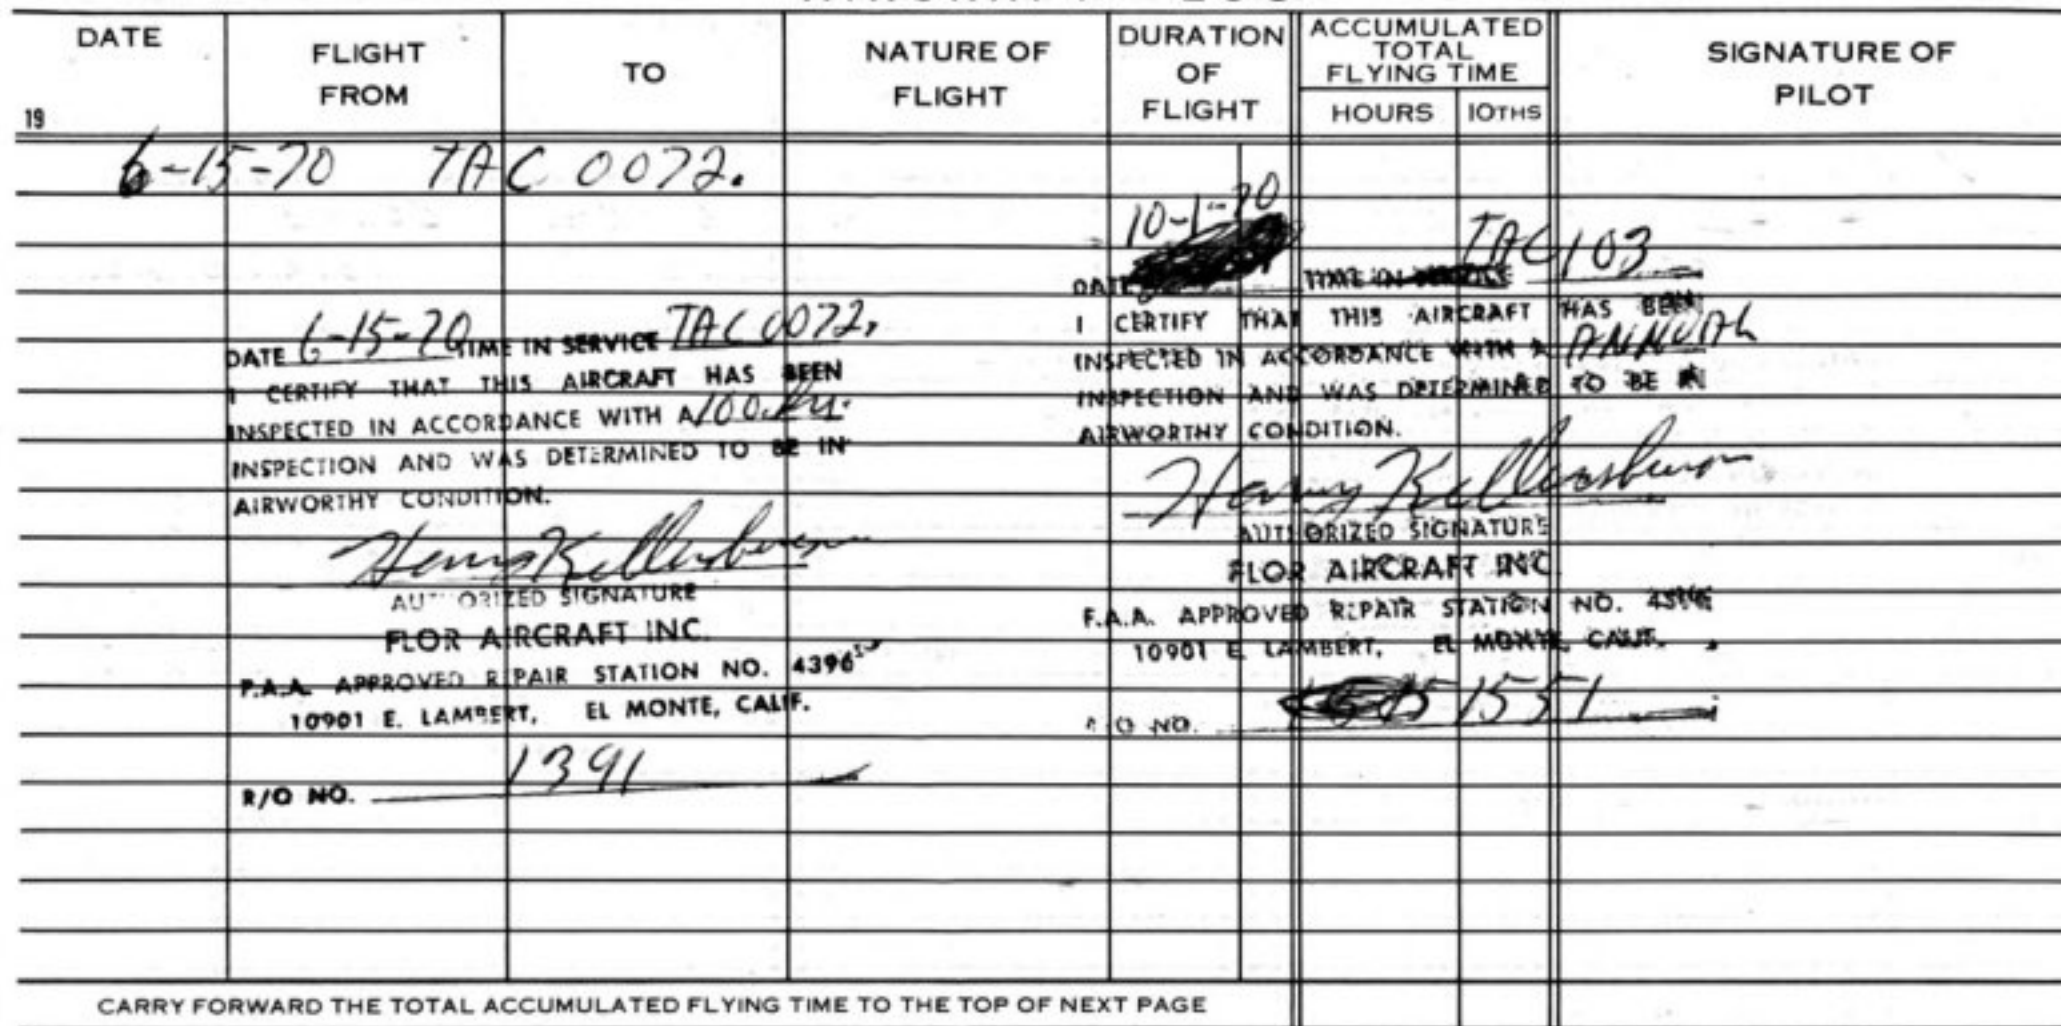 DATE
19
FLIGHT
FROM
TO
NATURE OF
FLIGHT
DURATION
OF
FLIGHT
ACCUMULATED
TOTAL
FLYING TIME
HOURS 10THS
SIGNATURE OF
PILOT
6-15-70 TAC 0072.
DATE 6-15-70 TIME IN SERVICE TAC 0072.
I CERTIFY THAT THIS AIRCRAFT HAS BEEN
INSPECTED IN ACCORDANCE WITH A 100 hr.
INSPECTION AND WAS DETERMINED TO BE IN
AIRWORTHY CONDITION.
AUTHORIZED SIGNATURE
FLOR AIRCRAFT INC.
F.A.A. APPROVED REPAIR STATION NO. 4396
10901 E. LAMBERT, EL MONTE, CALIF.
R/O NO. 1391
10-1-70
DATE TIME IN SERVICE TAC 103
I CERTIFY THAT THIS AIRCRAFT HAS BEEN
INSPECTED IN ACCORDANCE WITH A ANNUAL
INSPECTION AND WAS DETERMINED TO BE IN
AIRWORTHY CONDITION.
Henry
AUTHORIZED SIGNATURE
FLOR AIRCRAFT INC.
F.A.A. APPROVED REPAIR STATION NO.
10901 E. LAMBERT, EL MONTE, CALIF.
R/O NO. 1551
CARRY FORWARD THE TOTAL ACCUMULATED FLYING TIME TO THE TOP OF NEXT PAGE